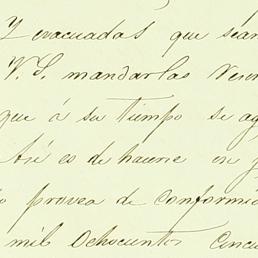 Y evacuadas que sean
V. S. mandarlas
que á su tiempo se ag
Así es de hacerse en j
o provea de conformid
mil Ochocientos Cincu